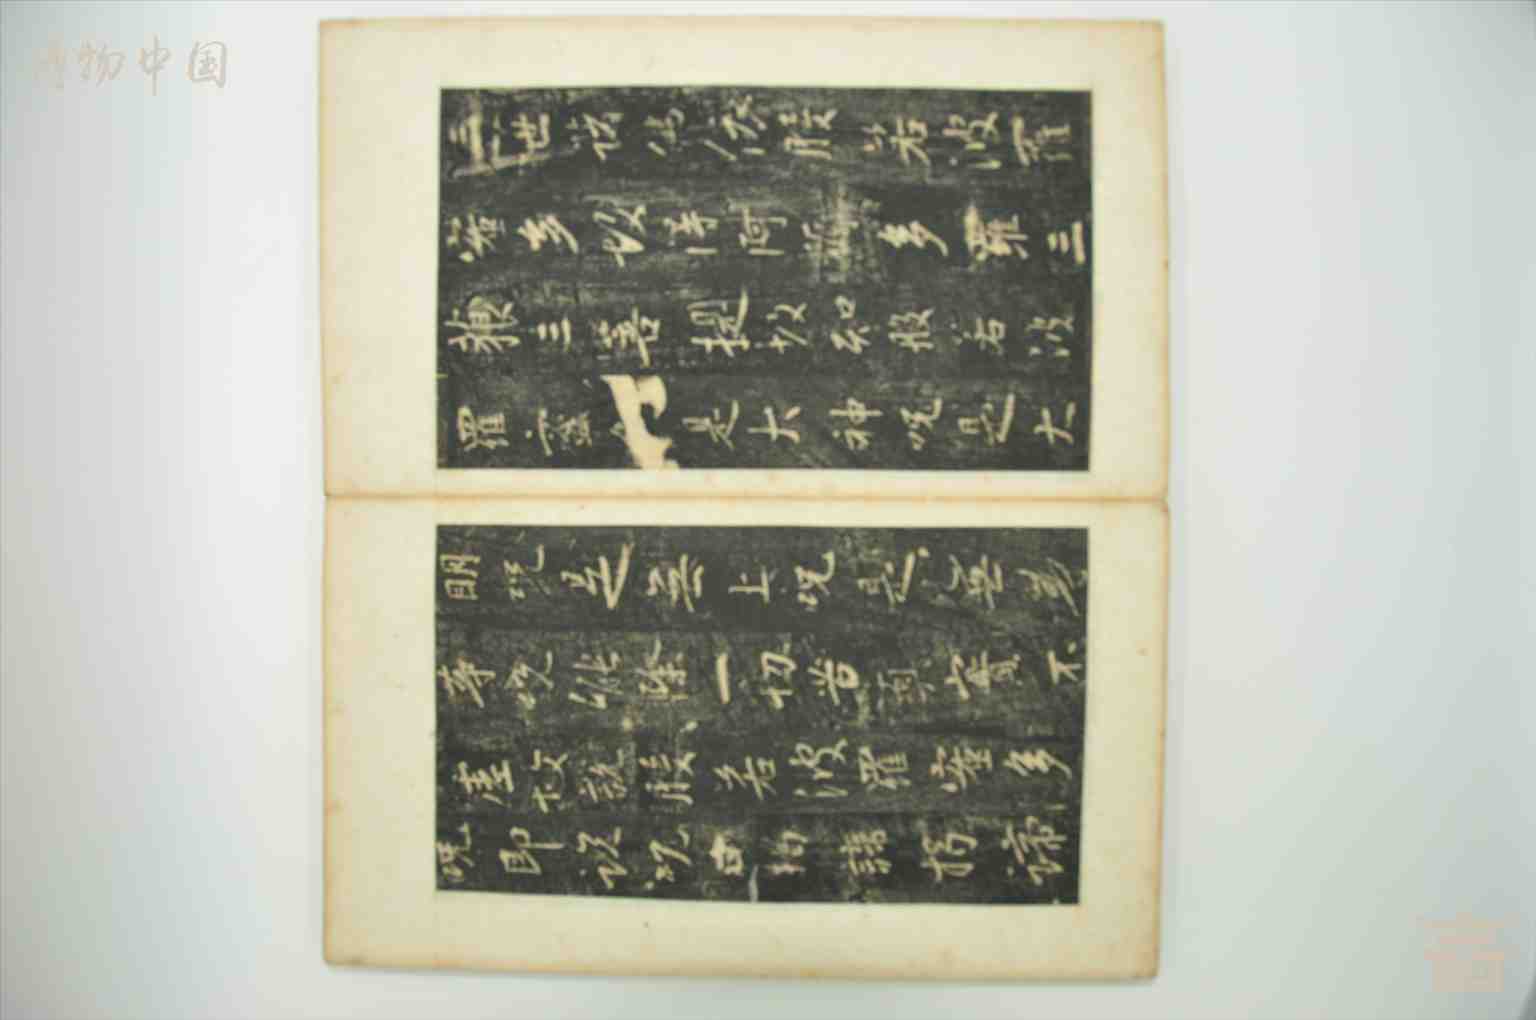 三世諸佛依般若波羅
蜜多故得阿耨多羅三
藐三菩提故知般若波
羅蜜是大神咒是大
明咒是無上咒是無等
等咒能除一切苦真實不
虛故說般若波羅蜜多
咒即說咒曰揭諦揭諦
博物中国